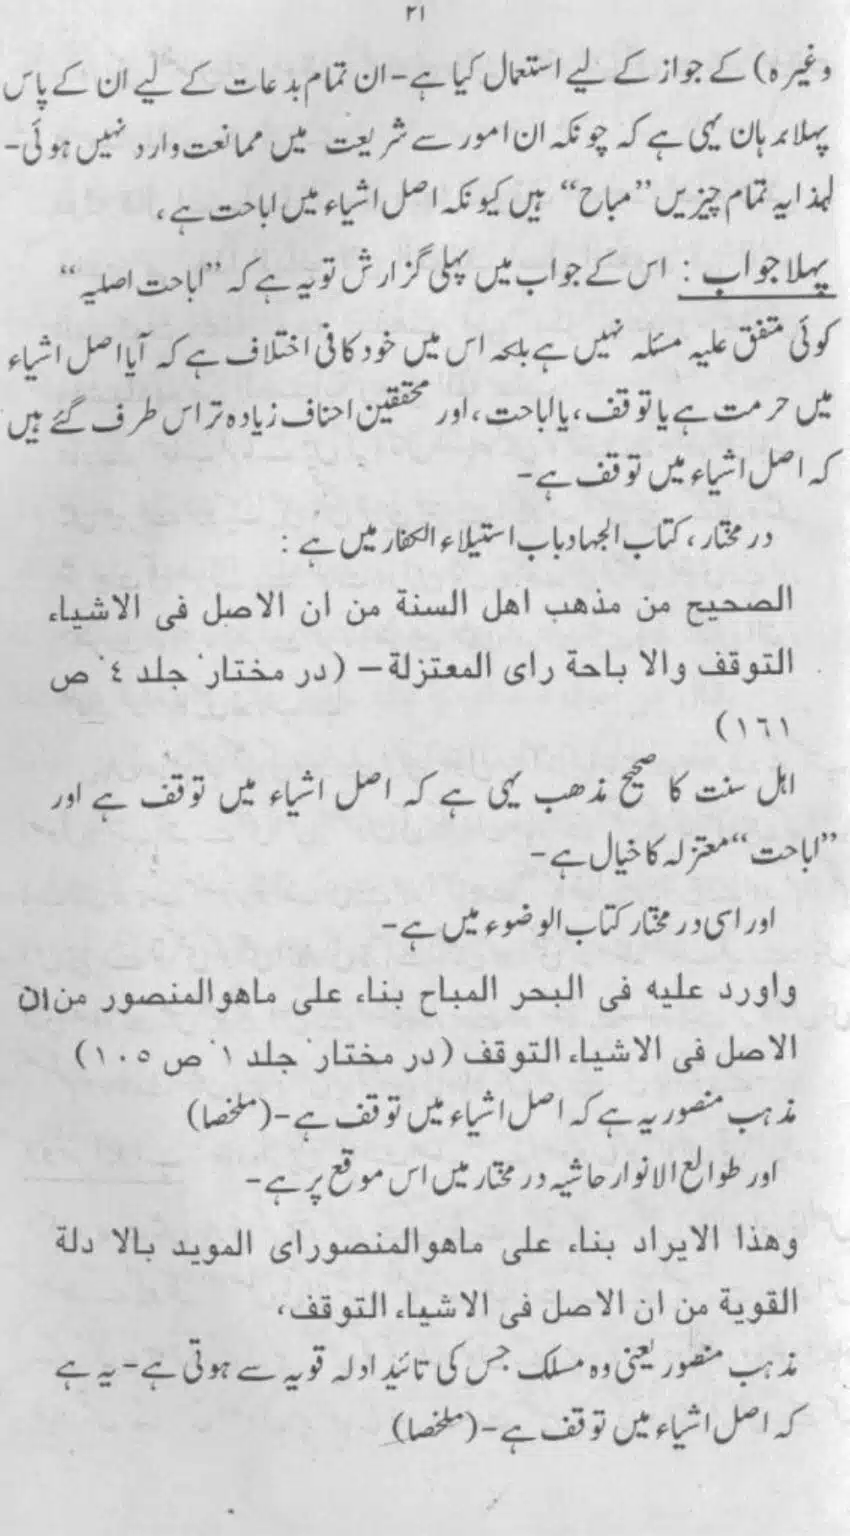 ۲۱
وغیرہ) کے جواز کے لیے استعمال کیا ہے- ان تمام بدعات کے لیے ان کے پاس
پہلا برہان یہی ہے کہ چونکہ ان امور سے شریعت میں ممانعت وارد نہیں ہوئی-
لہذا یہ تمام چیزیں ”مباح“ ہیں کیونکہ اصل اشیاء میں اباحت ہے،
پہلا جواب : اس کے جواب میں پہلی گزارش تو یہ ہے کہ ”اباحت اصلیہ“
کوئی متفق علیہ مسئلہ نہیں ہے بلکہ اس میں خود کافی اختلاف ہے کہ آیا اصل اشیاء
میں حرمت ہے یا توقف، یا اباحت، اور محققین احناف زیادہ تر اس طرف گئے ہیں
کہ اصل اشیاء میں توقف ہے-
در مختار، کتاب الجہاد باب استیلاء الکفار میں ہے :
الصحیح من مذهب اهل السنة من ان الاصل فی الاشیاء
التوقف والا باحة رای المعتزلة – (در مختار٬ جلد ٤٬ ص
١٦١)
اہل سنت کا صحیح مذھب یہی ہے کہ اصل اشیاء میں توقف ہے اور
”اباحت“ معتزلہ کا خیال ہے-
اور اسی در مختار کتاب الوضوء میں ہے-
واورد علیه فی البحر المباح بناء علی ماهوالمنصور من ان
الاصل فی الاشیاء التوقف (در مختار٬ جلد ١٬ ص ١٠٥)
مذہب منصور یہ ہے کہ اصل اشیاء میں توقف ہے-(ملخصا)
اور طوالع الانوار حاشیہ در مختار میں اس موقع پر ہے-
وهذا الایراد بناء علی ماهوالمنصورای الموید بالا دلة
القویة من ان الاصل فی الاشیاء التوقف،
مذہب منصور یعنی وہ مسلک جس کی تائید ادلہ قویہ سے ہوتی ہے- یہ ہے
کہ اصل اشیاء میں توقف ہے-(ملخصا)